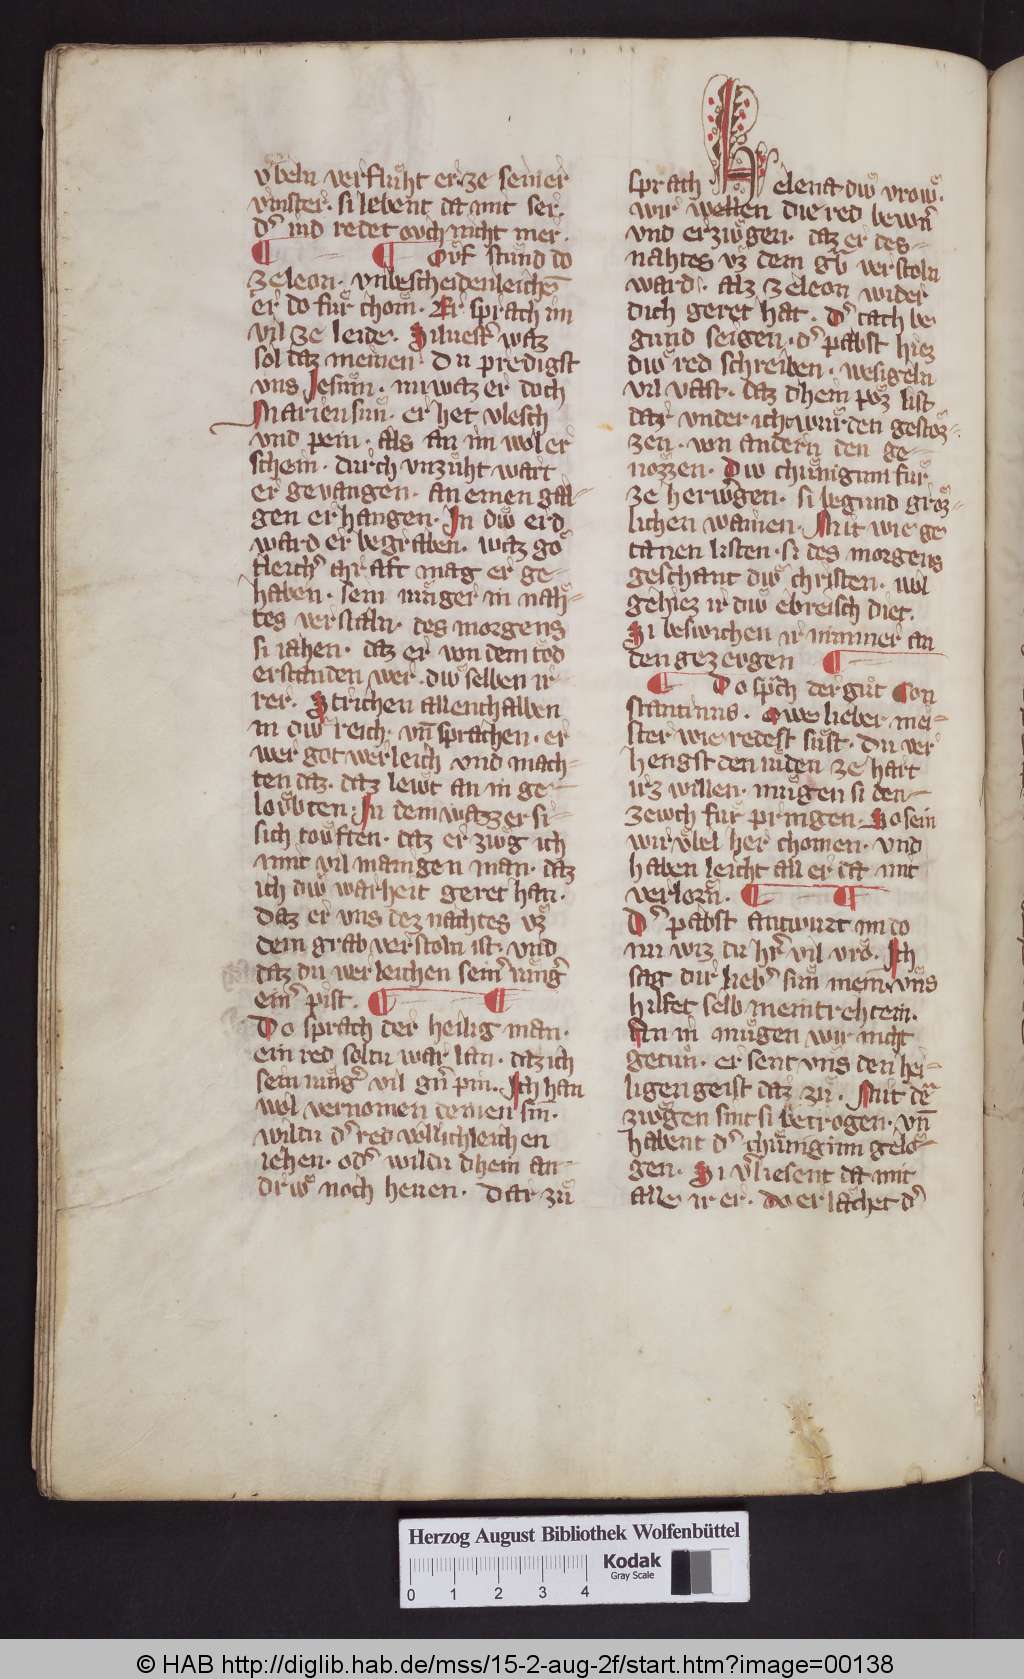 vͤbeln verfluͦht er ze seiner
vinster · si lebent da mit ser ·
dˀ iud redet ouch nicht mer ·
Ouf stuͦnd do
zeleon · vnbescheidenleichē
er do fuͤr chom · Er sprach im
vil ze leide · Siluestˀ waz
sol daz meinen · Du predigst
vns Jesum · nu waz er doch
Marien sun · er het vlesch
vnd pein · als an im wol er
schein · durch vnzuͤht wart
er gevangen · an einen gal-
gen erhangen · In diwͤ erd
ward er begraben · waz goͤ
tleichˀ chraft mag er ge-
haben · sein iunger in nah-
tes verstaln · des morgens
si iahen · daz er von dem tod
erstanden wer · diwͤ selben ir
rer · Strichen allenthalben
in diwͤ reich · vn̄ sprachen · er
wer got werleich vnd mach-
ten daz · daz lewt an in ge-
louͤbten · In dem wazzer si-
sich touͤften · daz er ziwͤg ich
mit vil manigen man · daz
ich diwͤ warheit geret han ·
Daz er vns dez nachtes vz
dem grab verstoln ist · vnd
daz du verleichen seinˀ iungˀ
einˀ pist ·
Do sprach der heilig man ·
ein red soltu war lan · daz ich
sein iungˀ vil gñ pin · Ich han
wol vernomen deinen sin ·
wildu dˀ red vollichleichen
iehen · odˀ wildu dhein an-
driwͤ noch heuen · Dar zuͦ
sprach Helena diwͤ vrowͤ ·
wir wellen die red bewˀn
vnd erziwͤgen · daz er des-
nahtes vz dem gͣb verstoln
ward · alz zeleon wider
dich geret hat · Dˀ tach be
gund seigen · dˀ pabst hiez
diwͤ red schreiben · wesigeln
vil vast · daz dhein poͤz list
daz vnder icht wurden gestoz-
zen · von andern den ge-
nozzen · Diw chuͤniginn fuͤr
ze herwˀgen · si begund groͤz-
lichen wainen · Mit wie ge
tanen listen · si des morgens
geschant diwͤ christen · wol
gehiez ir diwͤ ebreisch diet ·
Si beswichen ir nimmer an
den gezevgen
Do spͣch der guͦt Con
stantinus · Owe lieber mei-
ster wie redest sust · Du ver
hengst den iuden ze hart
irz willen · muͤgen si den-
zewch fuͤr pringen · So sein
wir vͤbel her chomen · vnd
haben leicht all er da mit
verlorn ·
Dˀ pabst antwurt im do
nu wiz du hˀr vil vro · Ich
sag dir liebˀ sun mein · vns
hilfet selb mein trehtein ·
An in muͤgen wir nicht
getuͦn · er sent vns den hei-
ligen geist daz zuͦ · Mit dē
ziwͤgen sint si betrogen · vn̄
habent dˀ chuͤniginn gelo-
gen · Si vˀliesent da mit
alle ir er · Do erlachet dˀ
Herzog August Bibliothek Wolfenbüttel
Kodak
Gray Scale
0 1 2 3 4
© HAB http://diglib.hab.de/mss/15-2-aug-2f/start.htm?image=00138